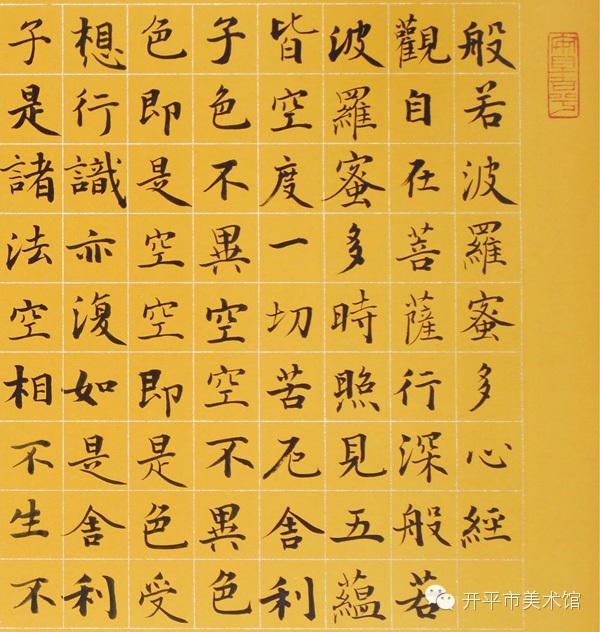 般若波羅蜜多心經
觀自在菩薩行深般若
波羅蜜多時照見五蘊
皆空度一切苦厄舍利
子色不異空空不異色
色即是空空即是色受
想行識亦復如是舍利
子是諸法空相不生不
开平市美术馆